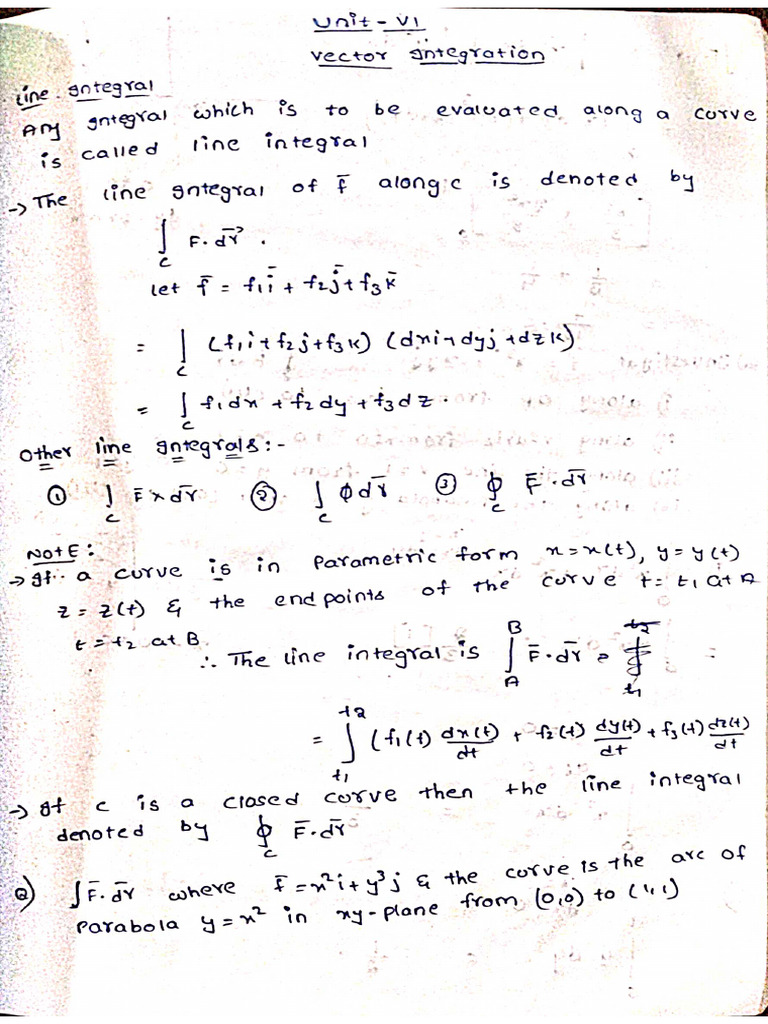 Unit - VI
Vector Integration
Line Integral
Any Integral which is to be evaluated along a curve
is called line integral
→ The line Integral of F̄ along c is denoted by
∫_c F. dr̄ .
let f̄ = f₁ī + f₂j̄ + f₃k̄
= ∫_c (f₁i + f₂j + f₃k) (dxi + dyj + dzk)
= ∫_c f₁dx + f₂dy + f₃dz .
Other line Integrals :-
① ∫_c F̄ × dr̄ ② ∫_c ϕ dr̄ ③ ∮_c F̄ . dr̄
NOTE :
→ If a curve is in Parametric form x = x(t), y = y(t)
z = z(t) & the end points of the curve t = t₁ at A
t = t₂ at B
∴ The line integral is ∫_A^B F̄ . dr̄ =
= ∫_{t₁}^{t₂} (f₁(t) dx(t)/dt + f₂(t) dy(t)/dt + f₃(t) dz(t)/dt
→ If c is a closed curve then the line integral
denoted by ∮_c F̄ . dr̄
Q) ∫F̄ . dr̄ where F̄ = x²i + y³j & the curve is the arc of
Parabola y = x² in xy-plane from (0,0) to (1,1)